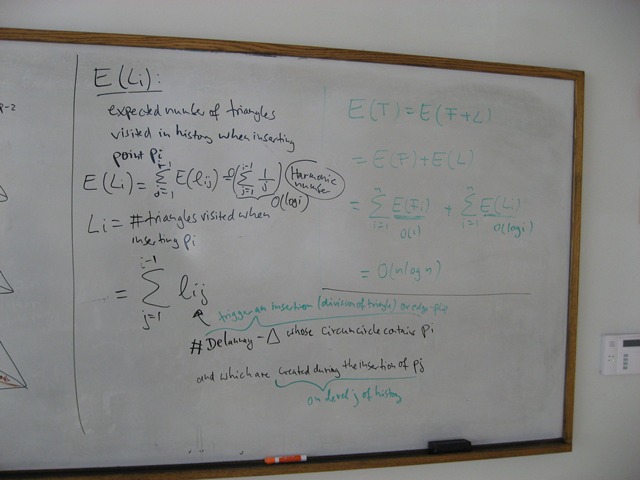 p-2
E(Li):
expected number of triangles
visited in history when inserting
point Pi
E(Li) = Σ_{j=1}^{i-1} E(lij) = O(Σ_{j=1}^{i-1} 1/j) Harmonic number
O(log i)
Li = # triangles visited when
inserting Pi
= Σ_{j=1}^{i-1} lij
trigger an insertion (division of triangle) or edge-flip
# Delaunay-Δ whose circumcircle contains Pi
and which are created during the insertion of Pj
on level j of history
E(T) = E(F+L)
= E(F) + E(L)
= Σ_{i=1}^{n} E(Fi) + Σ_{i=1}^{n} E(Li)
O(1) O(log i)
= O(n log n)